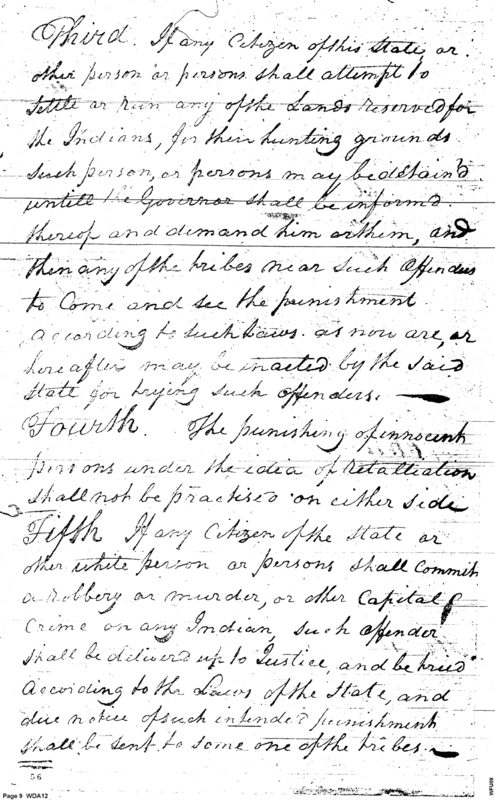 Third. If any Citizen of this State, or
other person or persons shall attempt to
settle or run any of the Lands reserved for
the Indians, for their hunting grounds
such person, or persons may be detain'd
untill the Governor shall be inform'd
thereof and demand him or them, and
then any of the tribes near such Offenders
to Come and see the punishment
according to such Laws. as now are, or
hereafter may be enacted by the said
State for trying such offenders.
Fourth. The punishing of innocent
persons under the idea of retalliation
shall not be practised on either side
Fifth If any Citizen of the State or
other white person or persons shall Commit
a robbery or murder, or other Capital
Crime on any Indian, such Offender
shall be delivered up to Justice, and be tried
According to the Laws of the State, and
due notice of such intended punishment
shall be sent to some one of the tribes.
56
Page 9 WDA12